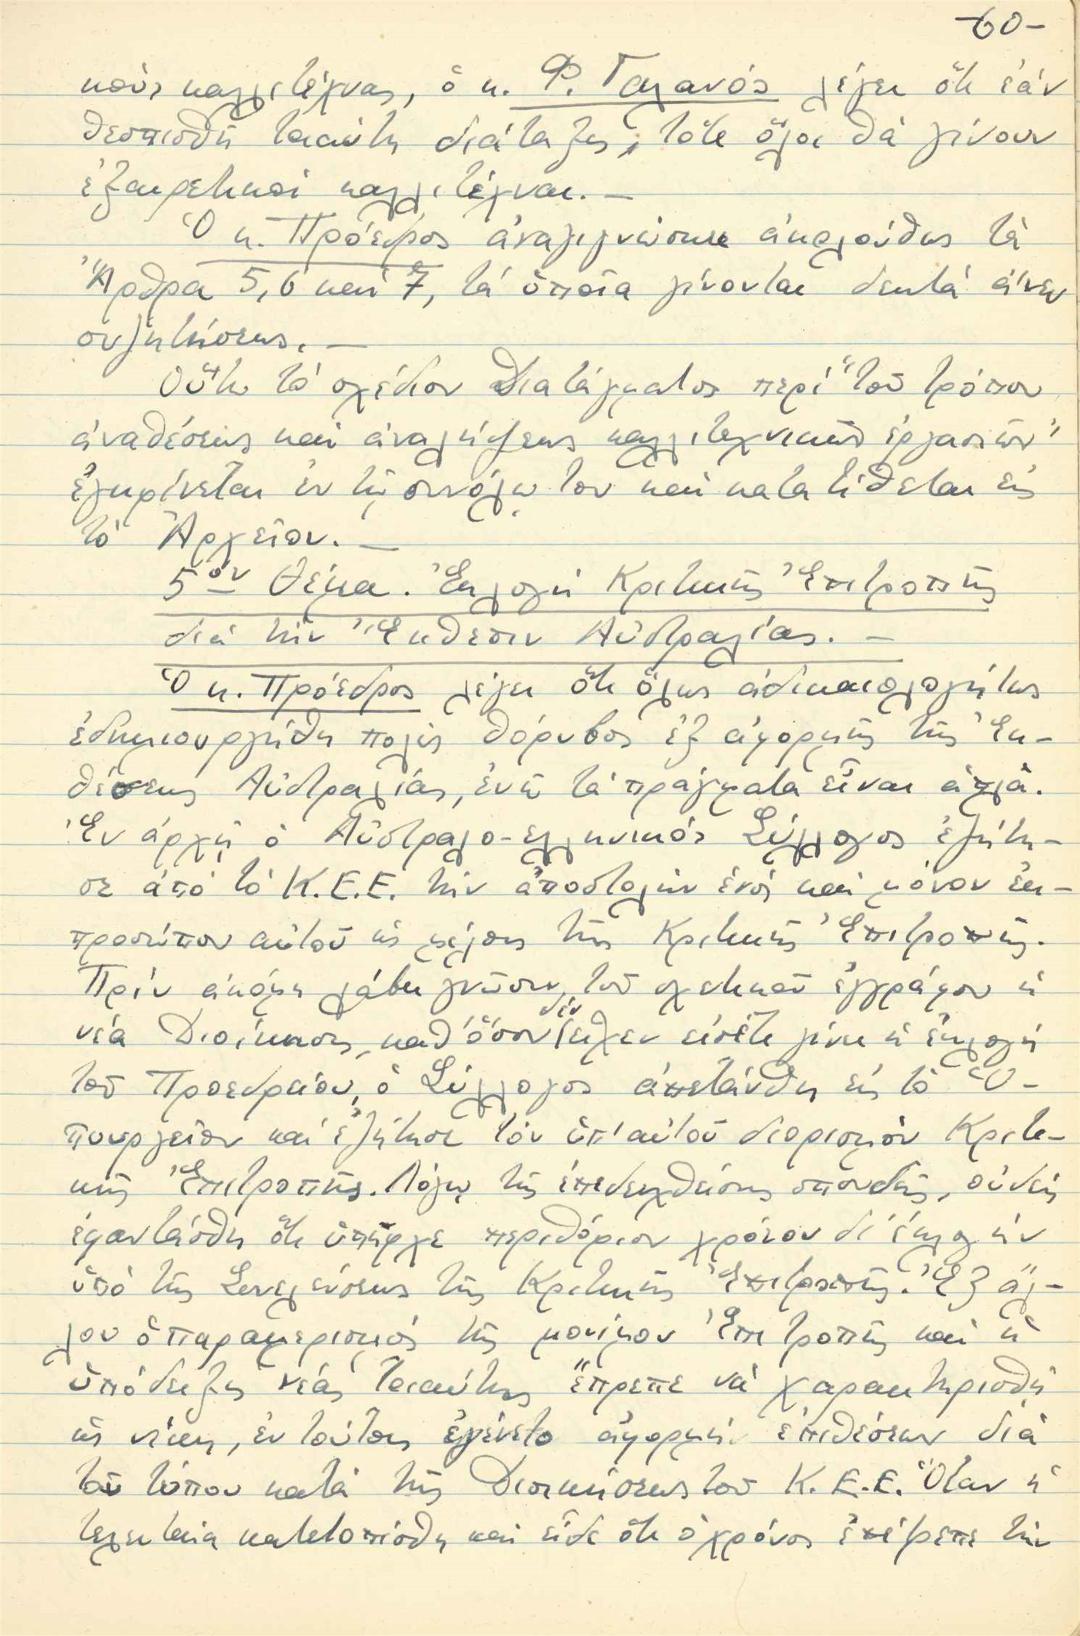 -60-
κούς καλλιτέχνας, ὁ κ. Φ. Γαλανός λέγει ὅτι ἐάν
θεσπισθῆ τοιαύτη διάταξις, τότε ὅλοι θά γίνουν
ἐξαιρετικοί καλλιτέχναι. —
Ὁ κ. Πρόεδρος ἀναγιγνώσκει ἀκολούθως τά
Ἄρθρα 5, 6 καί 7, τά ὁποῖα γίνονται δεκτά ἄνευ
συζητήσεως. —
Οὕτω τό σχέδιον Διατάγματος περί "τοῦ τρόπου
ἀναθέσεως καί ἀναλήψεως καλλιτεχνικῶν ἐργασιῶν"
ἐγκρίνεται ἐν τῷ συνόλῳ του καί κατατίθεται εἰς
τό Ἀρχεῖον. —
5ον Θέμα. Ἐκλογή Κριτικῆς Ἐπιτροπῆς
διά τήν Ἔκθεσιν Αὐστραλίας. —
Ὁ κ. Πρόεδρος λέγει ὅτι ὅλως ἀδικαιολογήτως
ἐδημιουργήθη πολύς θόρυβος ἐξ ἀφορμῆς τῆς Ἐκ-
θέσεως Αὐστραλίας, ἐνῶ τά πράγματα εἶναι ἁπλᾶ.
Ἐν ἀρχῇ ὁ Αὐστραλο-ελληνικός Σύλλογος ἐζήτη-
σε ἀπό τό Κ.Ε.Ε. τήν ἀποστολήν ἑνός καί μόνον ἐκ-
προσώπου αὐτοῦ ὡς μέλους τῆς Κριτικῆς Ἐπιτροπῆς.
Πρίν ἀκόμη λάβη γνῶσιν τοῦ σχετικοῦ ἐγγράφου ἡ
νέα Διοίκησις, καθ' ὅσον δέν εἶχεν εἰσέτι γίνει ἡ ἐκλογή
τοῦ Προεδρείου, ὁ Σύλλογος ἀπετάνθη εἰς τό Ὑ-
πουργεῖον καί ἐζήτησε τόν ὑπ' αὐτοῦ διορισμόν Κριτι-
κῆς Ἐπιτροπῆς. Λόγῳ τῆς ἐπιδειχθείσης σπουδῆς, οὐδείς
ἐφαντάσθη ὅτι ὑπῆρχε περιθόριον χρόνου δι' ἐκλογήν
ὑπό τῆς Συνελεύσεως τῆς Κριτικῆς Ἐπιτροπῆς. Ἐξ ἄλ-
λου ὁ παραμερισμός τῆς μονίμου Ἐπιτροπῆς καί ἡ
ὑπόδειξις νέας τοιαύτης ἔπρεπε νά χαρακτηρισθῆ
ὡς νίκη, ἐν τούτοις ἐγένετο ἀφορμή ἐπιθέσεων διά
τοῦ τύπου κατά τῆς Διοικήσεως τοῦ Κ.Ε.Ε. Ὅταν ἡ
τελευταία κατετοπίσθη καί εἶδε ὅτι ὁ χρόνος ἐπέτρεπε τήν